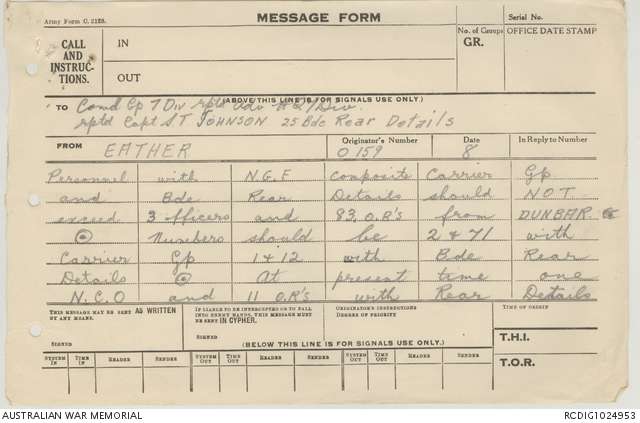 Army Form C. 2128.
MESSAGE FORM
Serial No.
CALL AND INSTRUCTIONS.
IN
No. of Groups
GR.
OFFICE DATE STAMP
OUT
(ABOVE THIS LINE IS FOR SIGNALS USE ONLY.)
TO Comd Gp 7 Div rptd Adv H.Q 7 Div
rptd Capt S T JOHNSON 25 Bde Rear Details
FROM EATHER
Originator's Number O 159
Date 8
In Reply to Number
Personnel with N.G.F Composite Carrier Gp
and Bde Rear Details should NOT
exceed 3 officers and 83. O.R's from DUNBAR.
⊙ Numbers should be 2 & 71 with
Carrier Gp 1 & 12 with Bde Rear
Details ⊙ At present time one
N.C.O and 11 O.R's with Rear Details
THIS MESSAGE MAY BE SENT AS WRITTEN BY ANY MEANS.
SIGNED
IF LIABLE TO BE INTERCEPTED OR TO FALL INTO ENEMY HANDS, THIS MESSAGE MUST BE SENT IN CYPHER.
SIGNED
ORIGINATOR'S INSTRUCTIONS
DEGREE OF PRIORITY
TIME OF ORIGIN
(BELOW THIS LINE IS FOR SIGNALS USE ONLY.)
T.H.I.
SYSTEM IN TIME IN READER SENDER SYSTEM OUT TIME OUT READER SENDER SYSTEM OUT TIME OUT READER SENDER
T.O.R.
AUSTRALIAN WAR MEMORIAL
RCDIG1024953